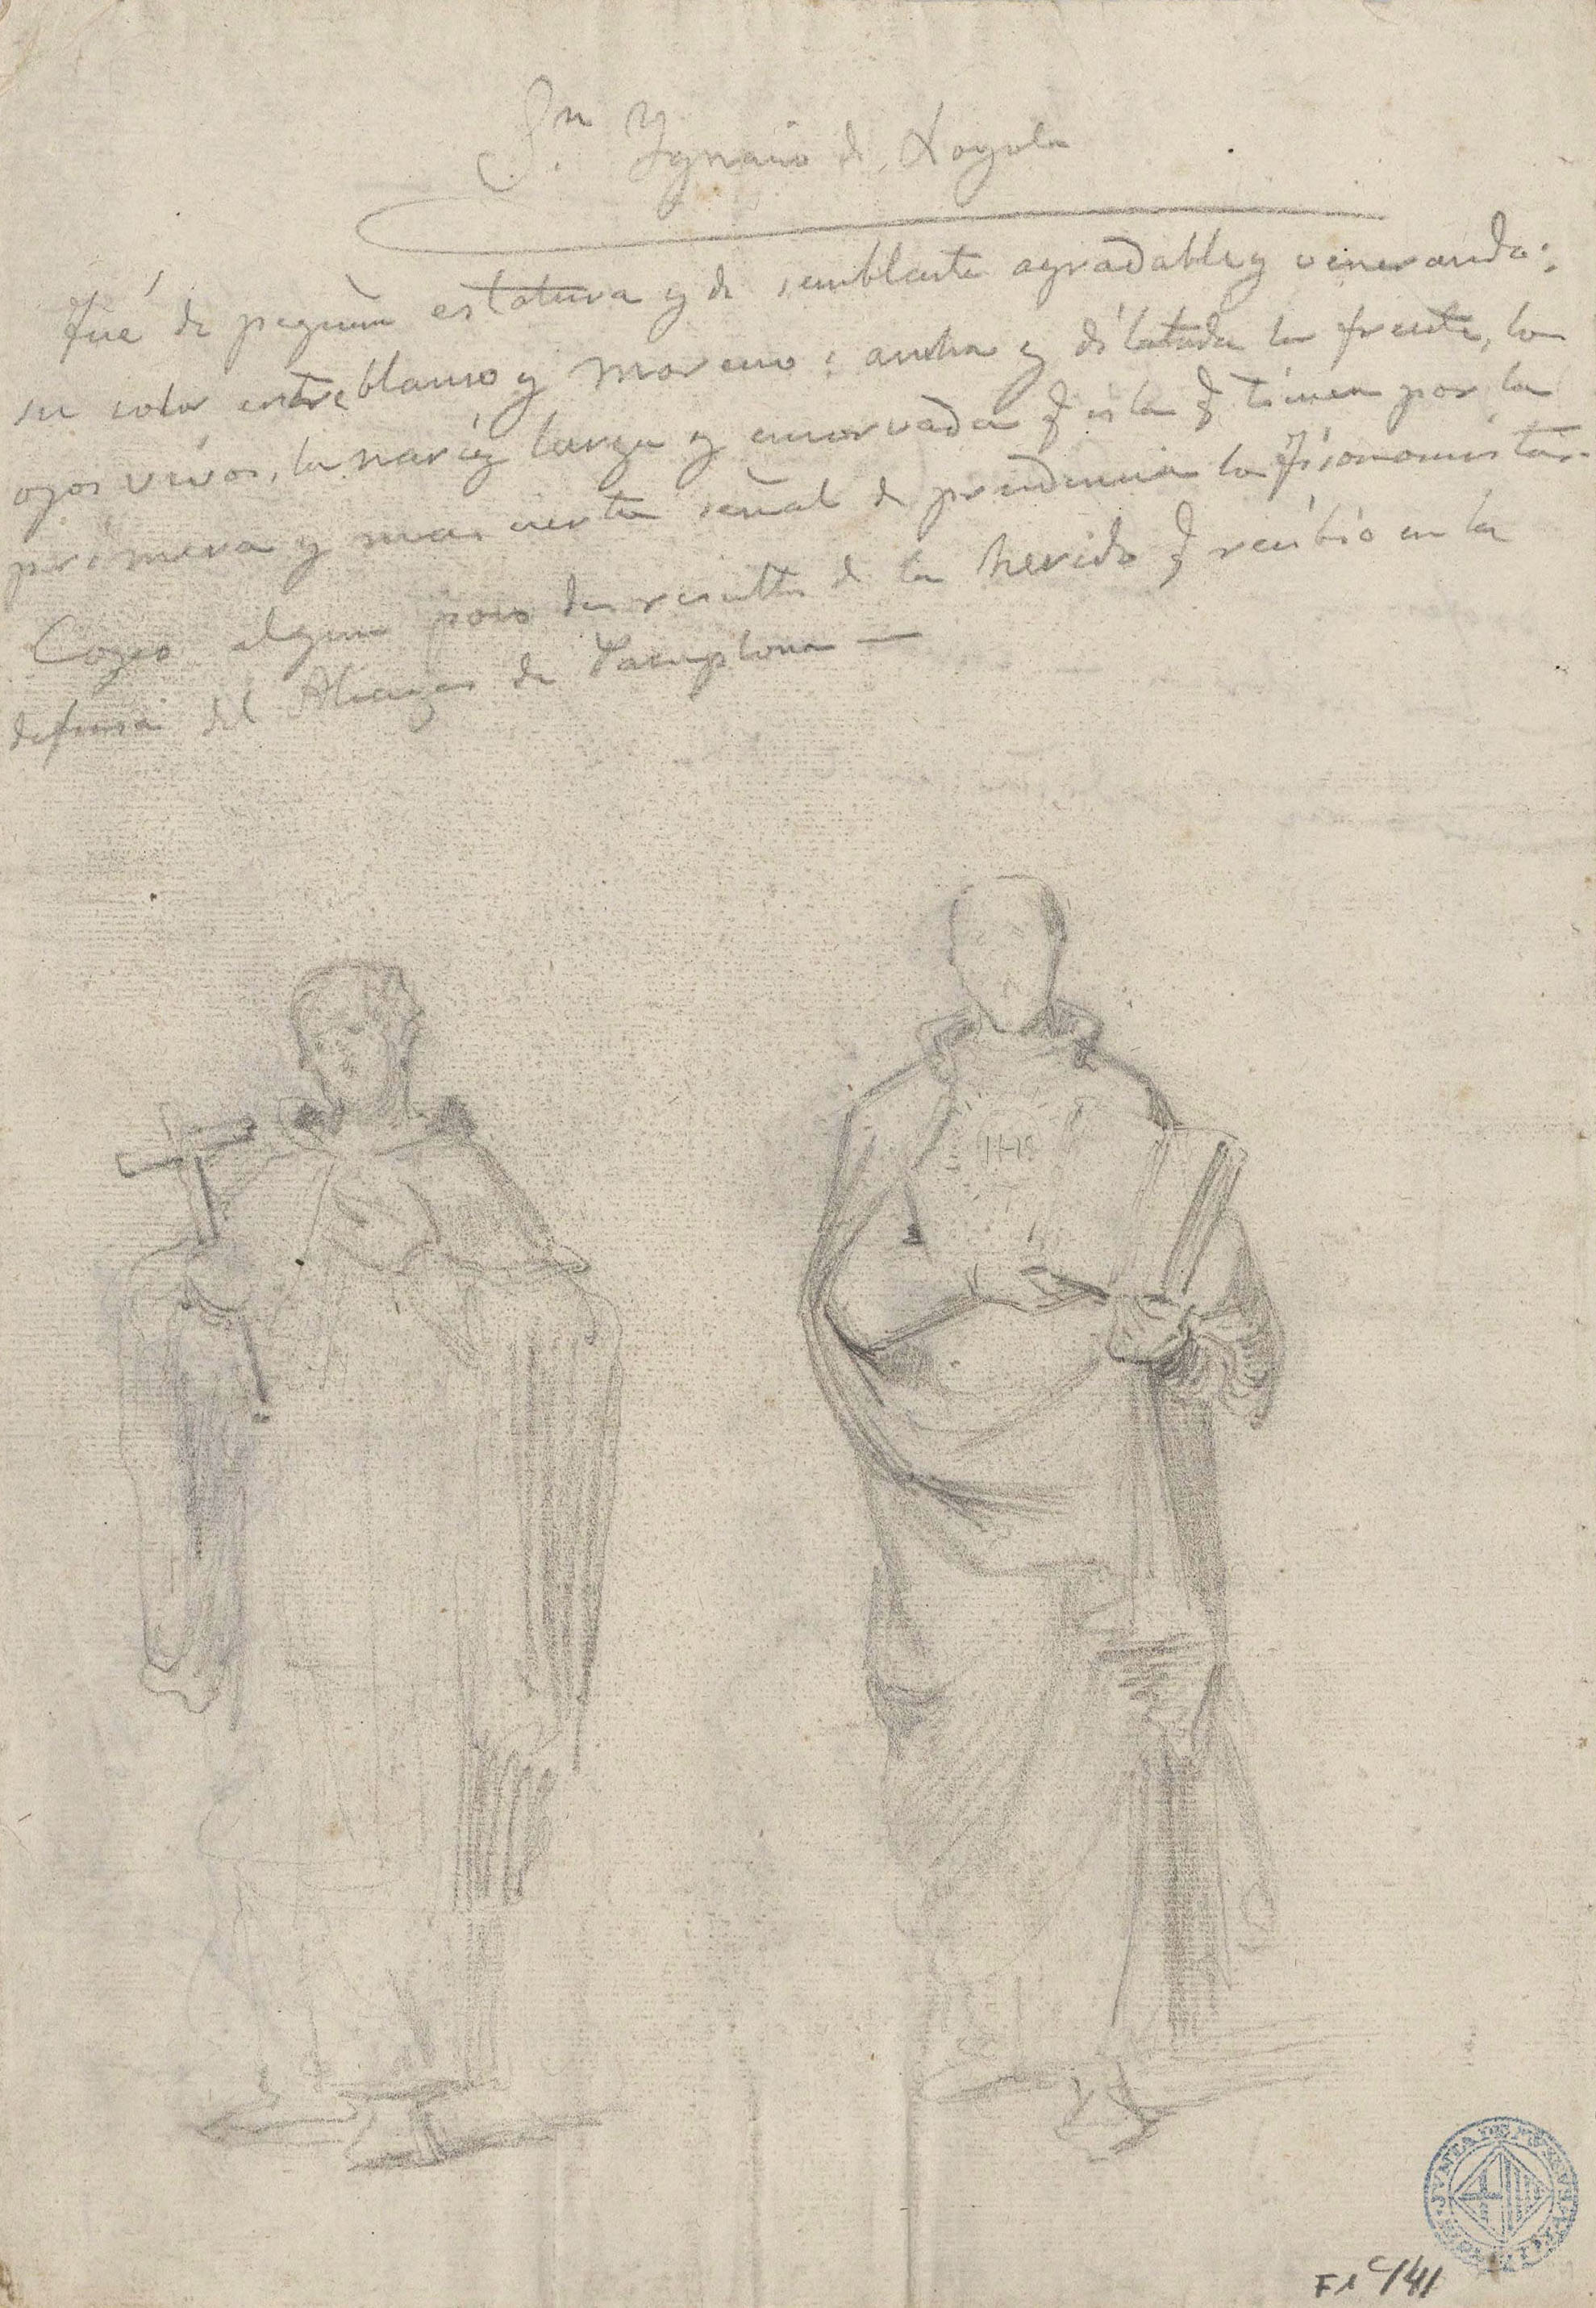 Sn. Ygnacio de Loyola
Fué de pequeña estatura y de semblante agradable y venerando:
su color entre blanco y moreno: ancha y dilatada la frente, los
ojos vivos, la nariz larga y encorvada q es la q tienen por la
primera y mas cierta señal de prudencia los fisonomistas.
Cogeo algun poco de resulta de la herida q recibió en la
defensa del Alcazar de Pamplona —
IHS
JUNTA DE MUSEUS
F1 C/41